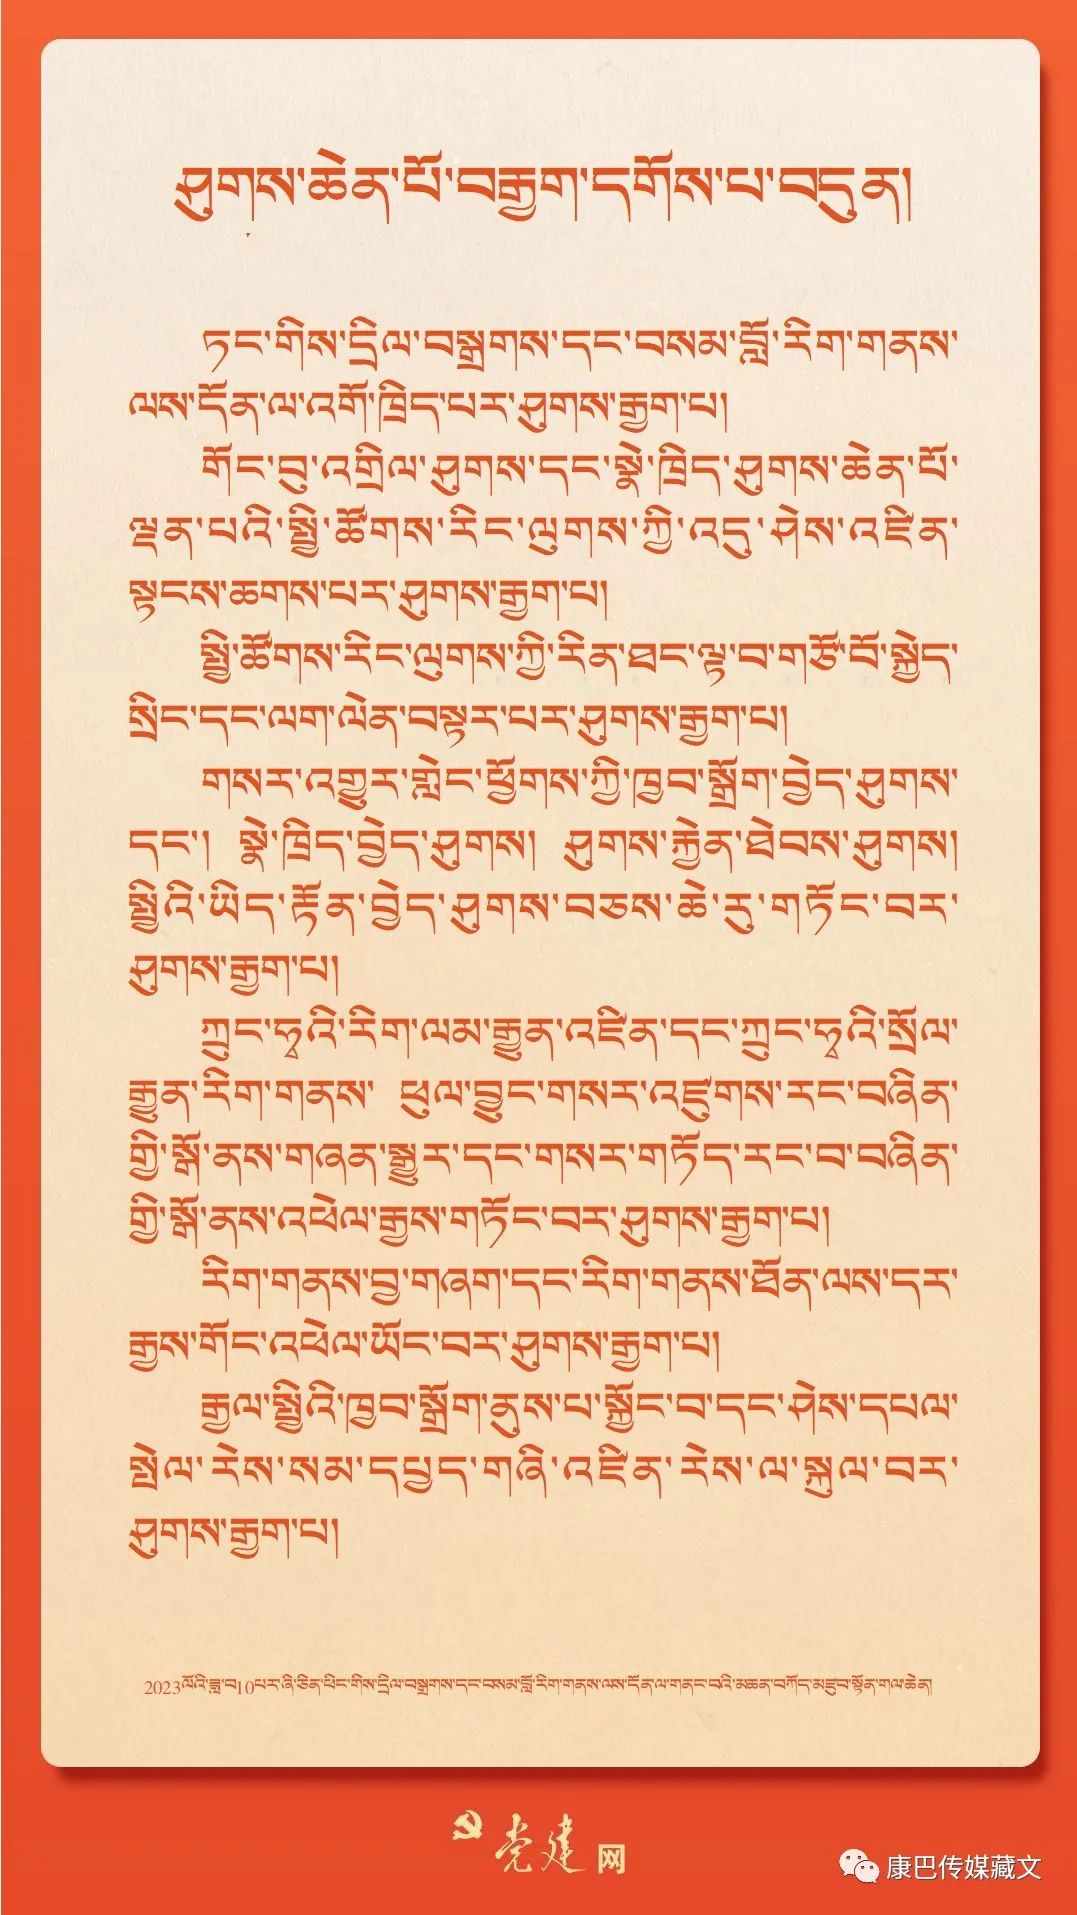 ཤུགས་ཆེན་པོ་བརྒྱག་དགོས་པ་བདུན།
ཏང་གིས་དྲིལ་བསྒྲགས་དང་བསམ་བློ་རིག་གནས་
ལས་དོན་ལ་འགོ་ཁྲིད་པར་ཤུགས་རྒྱག་པ།
གོང་བུ་འགྲིལ་ཤུགས་དང་སྣེ་ཁྲིད་ཤུགས་ཆེན་པོ་
ལྡན་པའི་སྤྱི་ཚོགས་རིང་ལུགས་ཀྱི་འདུ་ཤེས་འཛིན་
སྟངས་ཆགས་པར་ཤུགས་རྒྱག་པ།
སྤྱི་ཚོགས་རིང་ལུགས་ཀྱི་རིན་ཐང་ལྟ་བ་གཙོ་བོ་སྐྱེད་
སྲིང་དང་ལག་ལེན་བསྟར་པར་ཤུགས་རྒྱག་པ།
གསར་འགྱུར་གླེང་ཕྱོགས་ཀྱི་ཁྱབ་སྒྲོག་བྱེད་ཤུགས་
དང་། སྣེ་ཁྲིད་བྱེད་ཤུགས། ཤུགས་རྐྱེན་ཐེབས་ཤུགས།
སྤྱིའི་ཡིད་རྟོན་བྱེད་ཤུགས་བཅས་ཆེ་རུ་གཏོང་བར་
ཤུགས་རྒྱག་པ།
ཀྲུང་ཧྭའི་རིག་ལམ་རྒྱུན་འཛིན་དང་ཀྲུང་ཧྭའི་སྲོལ་
རྒྱུན་རིག་གནས་ ཕུལ་བྱུང་གསར་འཛུགས་རང་བཞིན་
གྱི་སྒོ་ནས་གཞན་སྒྱུར་དང་གསར་གཏོད་རང་བ་བཞིན་
གྱི་སྒོ་ནས་འཕེལ་རྒྱས་གཏོང་བར་ཤུགས་རྒྱག་པ།
རིག་གནས་བྱ་གཞག་དང་རིག་གནས་ཐོན་ལས་དར་
རྒྱས་གོང་འཕེལ་ཡོང་བར་ཤུགས་རྒྱག་པ།
རྒྱལ་སྤྱིའི་ཁྱབ་སྒྲོག་ནུས་པ་སྐྱོང་བ་དང་ཤེས་དཔལ་
སྤེལ་རེས་སམ་དཔྱད་གཞི་འཛིན་རེས་ལ་སྐུལ་བར་
ཤུགས་རྒྱག་པ།
2023ལོའི་ཟླ་བ10པར་ཞི་ཅིན་ཕིང་གིས་དྲིལ་བསྒྲགས་དང་བསམ་བློ་རིག་གནས་ལས་དོན་ལ་གནང་བའི་མཆན་བཀོད་མཛུབ་སྟོན་གལ་ཆེན།
党建网
康巴传媒藏文